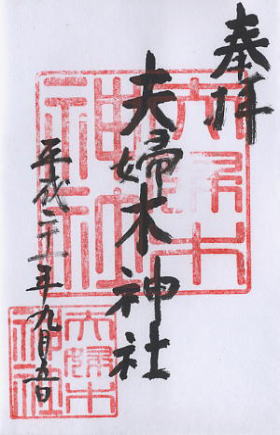 奉拝
夫婦木神社
平成二十一年九月五日
夫婦木神社
夫婦木神社